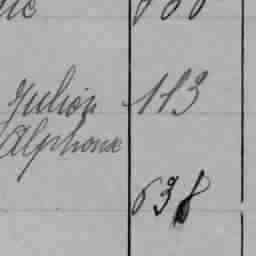 Julion 113
Alphonse
638